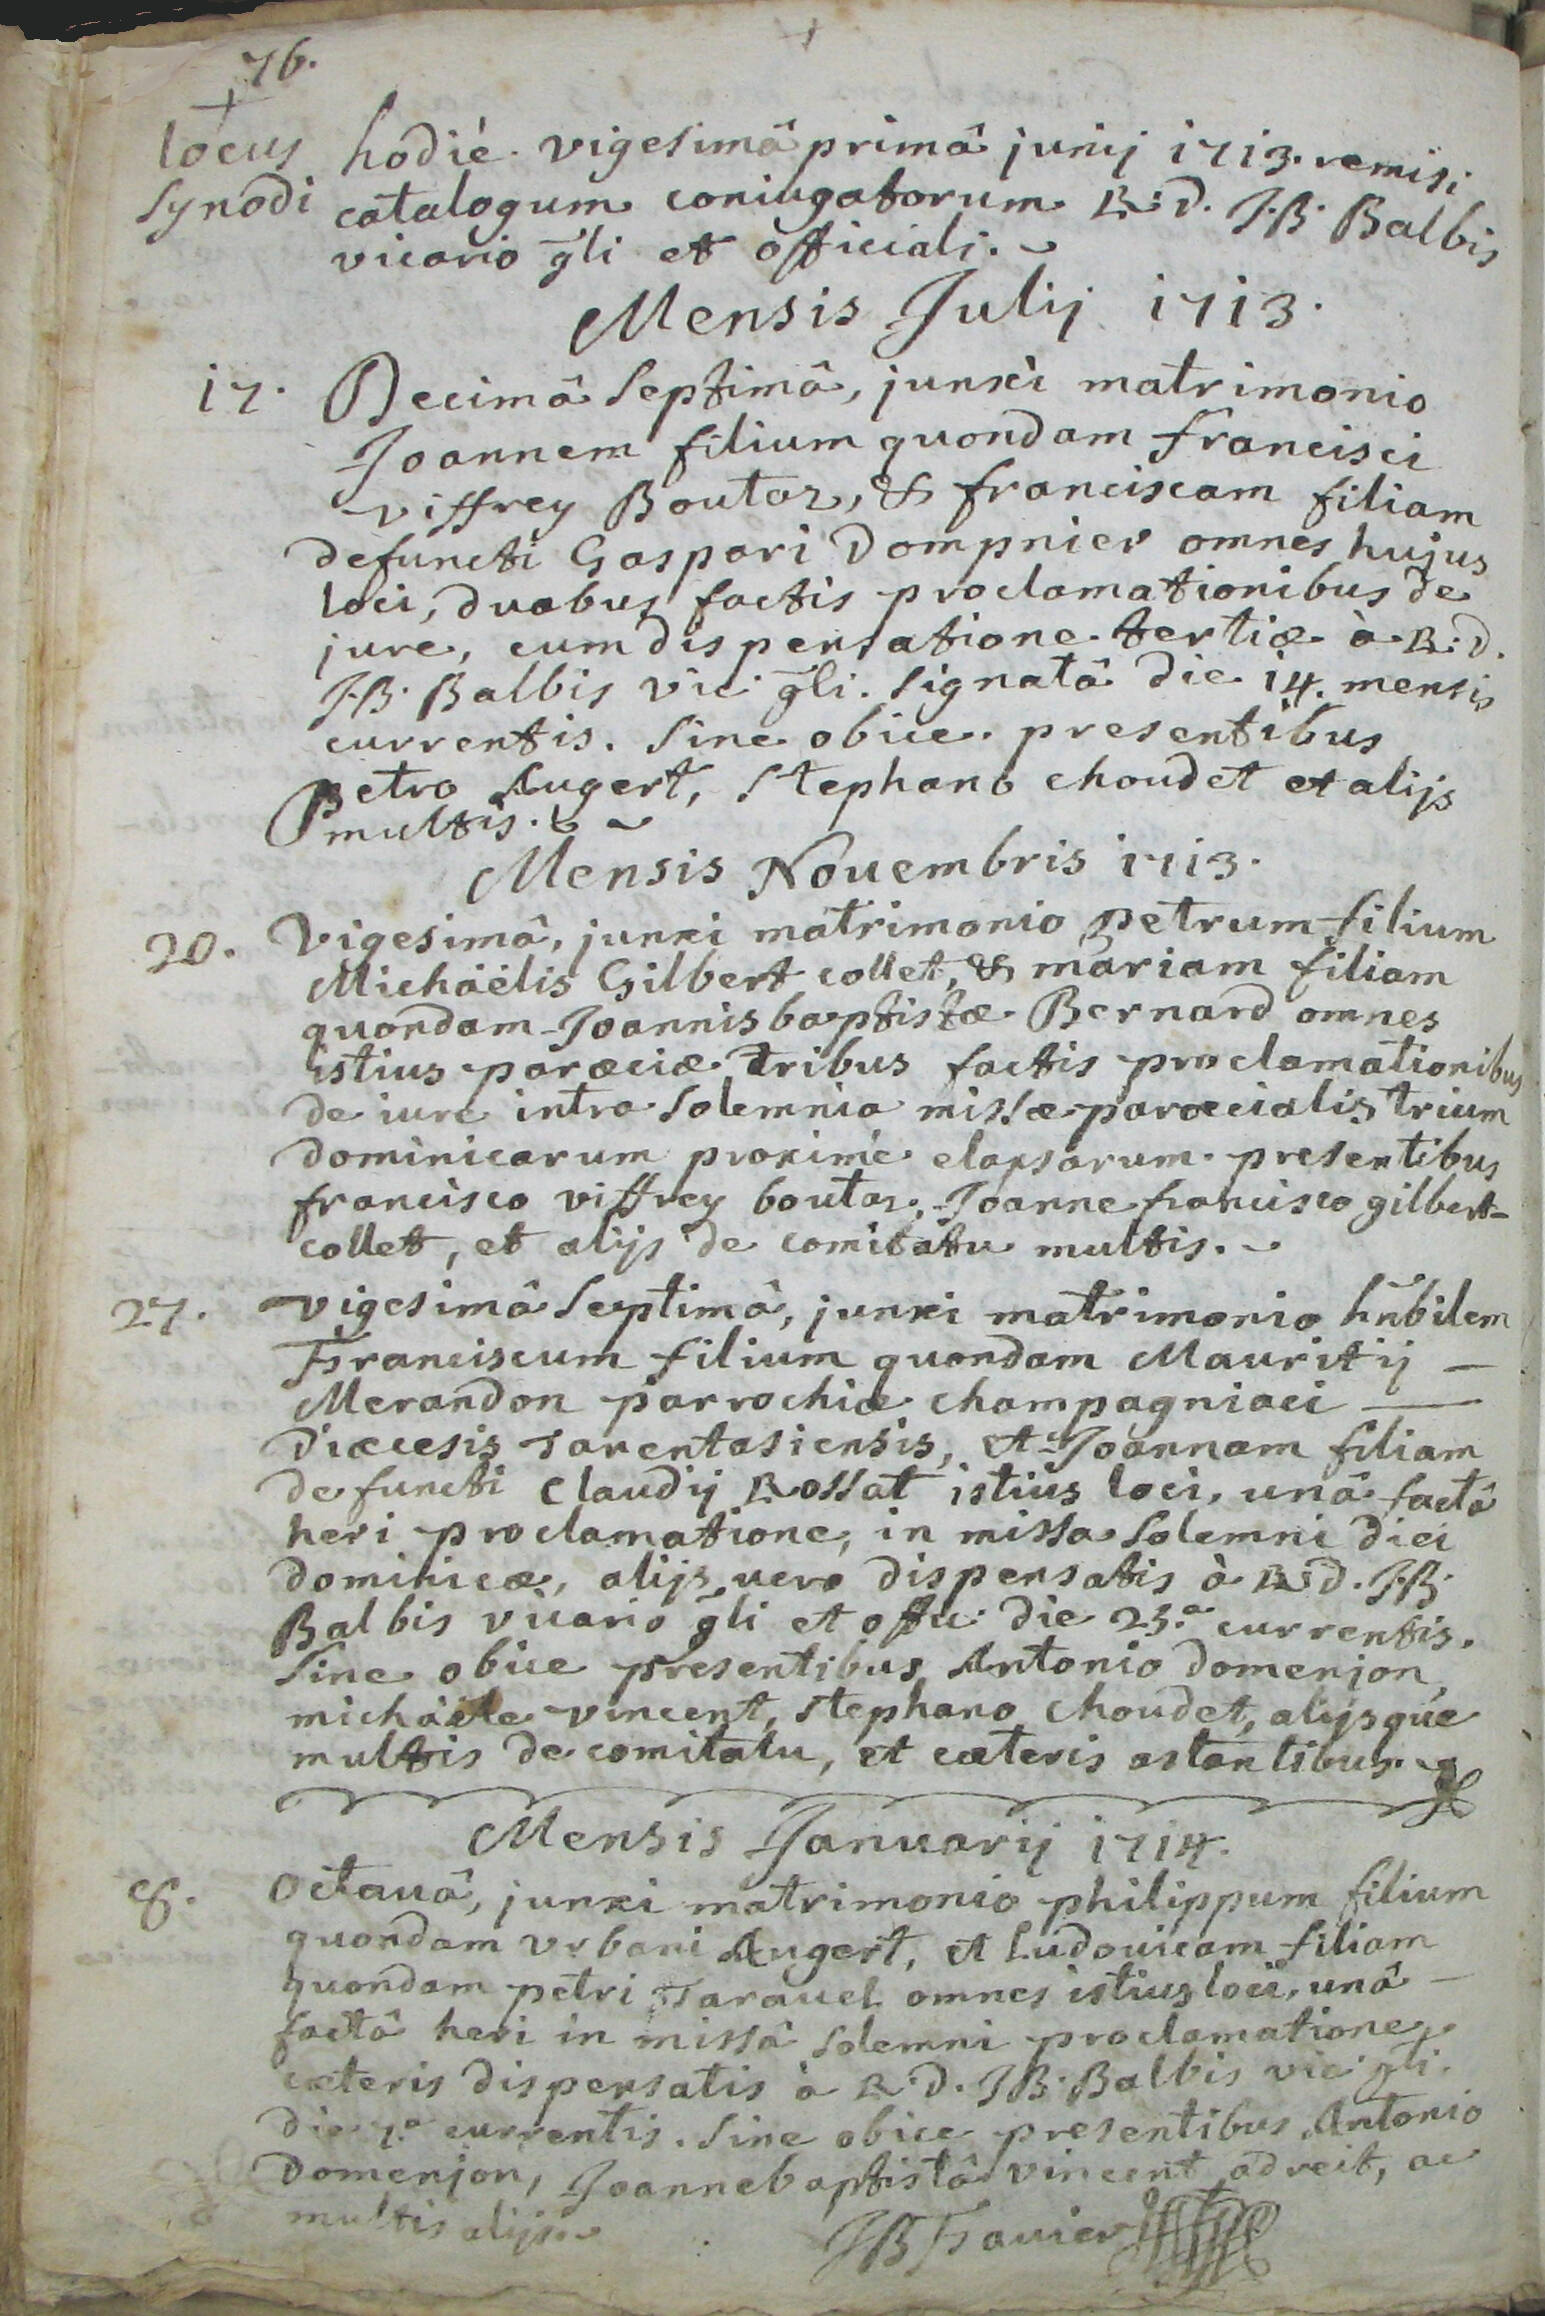 76.
locus
synodi
hodié vigesimâ primâ junij 1713. remisi
catalogum coniugatorum R.D. JB. Balbis
vicario gli et officiali.
Mensis Julij 1713.
17. Decimâ septimâ, junxi matrimonio
Joannem filium quondam francisci
viffrey Boutaz, & franciscam filiam
defuncti Gaspari Dompnier omnes hujus
loci, duabus factis proclamationibus de
jure, cum dispensatione tertiæ à R.D.
JB. Balbis vic. gli. signatâ die 14. mensis
currentis. sine obice. presentibus
Petro Augert, stephano choudet et alijs
multis.
Mensis Nouembris 1713.
20. Vigesimâ, junxi matrimonio Petrum filium
Michaëlis Gilbert collet, & mariam filiam
quondam Joannisbaptistæ Bernard omnes
istius parœciæ tribus factis proclamationibus
de iure intra solemnia missæ parœcialis trium
dominicarum proximé elapsarum. presentibus
francisco viffrey boutaz, Joanne francisco gilbert-
collet, et alijs de comitatu multis.
27. vigesimâ septimâ, junxi matrimonio hñbilem
Franciscum filium quondam Mauritij -
Merandon parrochiæ champagniaci -
diæcesis Tarentasiensis, et Joannam filiam
defuncti Claudij Rossat istius loci, unâ factâ
heri proclamatione, in missa solemni diei
dominicæ, alijs vero dispensatis à R.D. JB.
Balbis vicario gli et offic. die 25.a currentis.
sine obice presentibus Antonio domenjon,
michaële vincent, stephano choudet, alijsque
multis de comitatu, et cæteris astantibus.
Mensis Januarij 1714.
8. Octauâ, junxi matrimonio philippum filium
quondam vrbani Augert, et Ludouicam filiam
quondam petri Tarauel omnes istius loci, unâ -
factâ heri in missâ solemni proclamatione,
cæteris dispensatis à R.D. JB. Balbis vic. gli.
die 7.a currentis. sine obice presentibus Antonio
Domenjon, Joannebaptistâ vincent adreit, ac
multis alijs.
JB Fauier